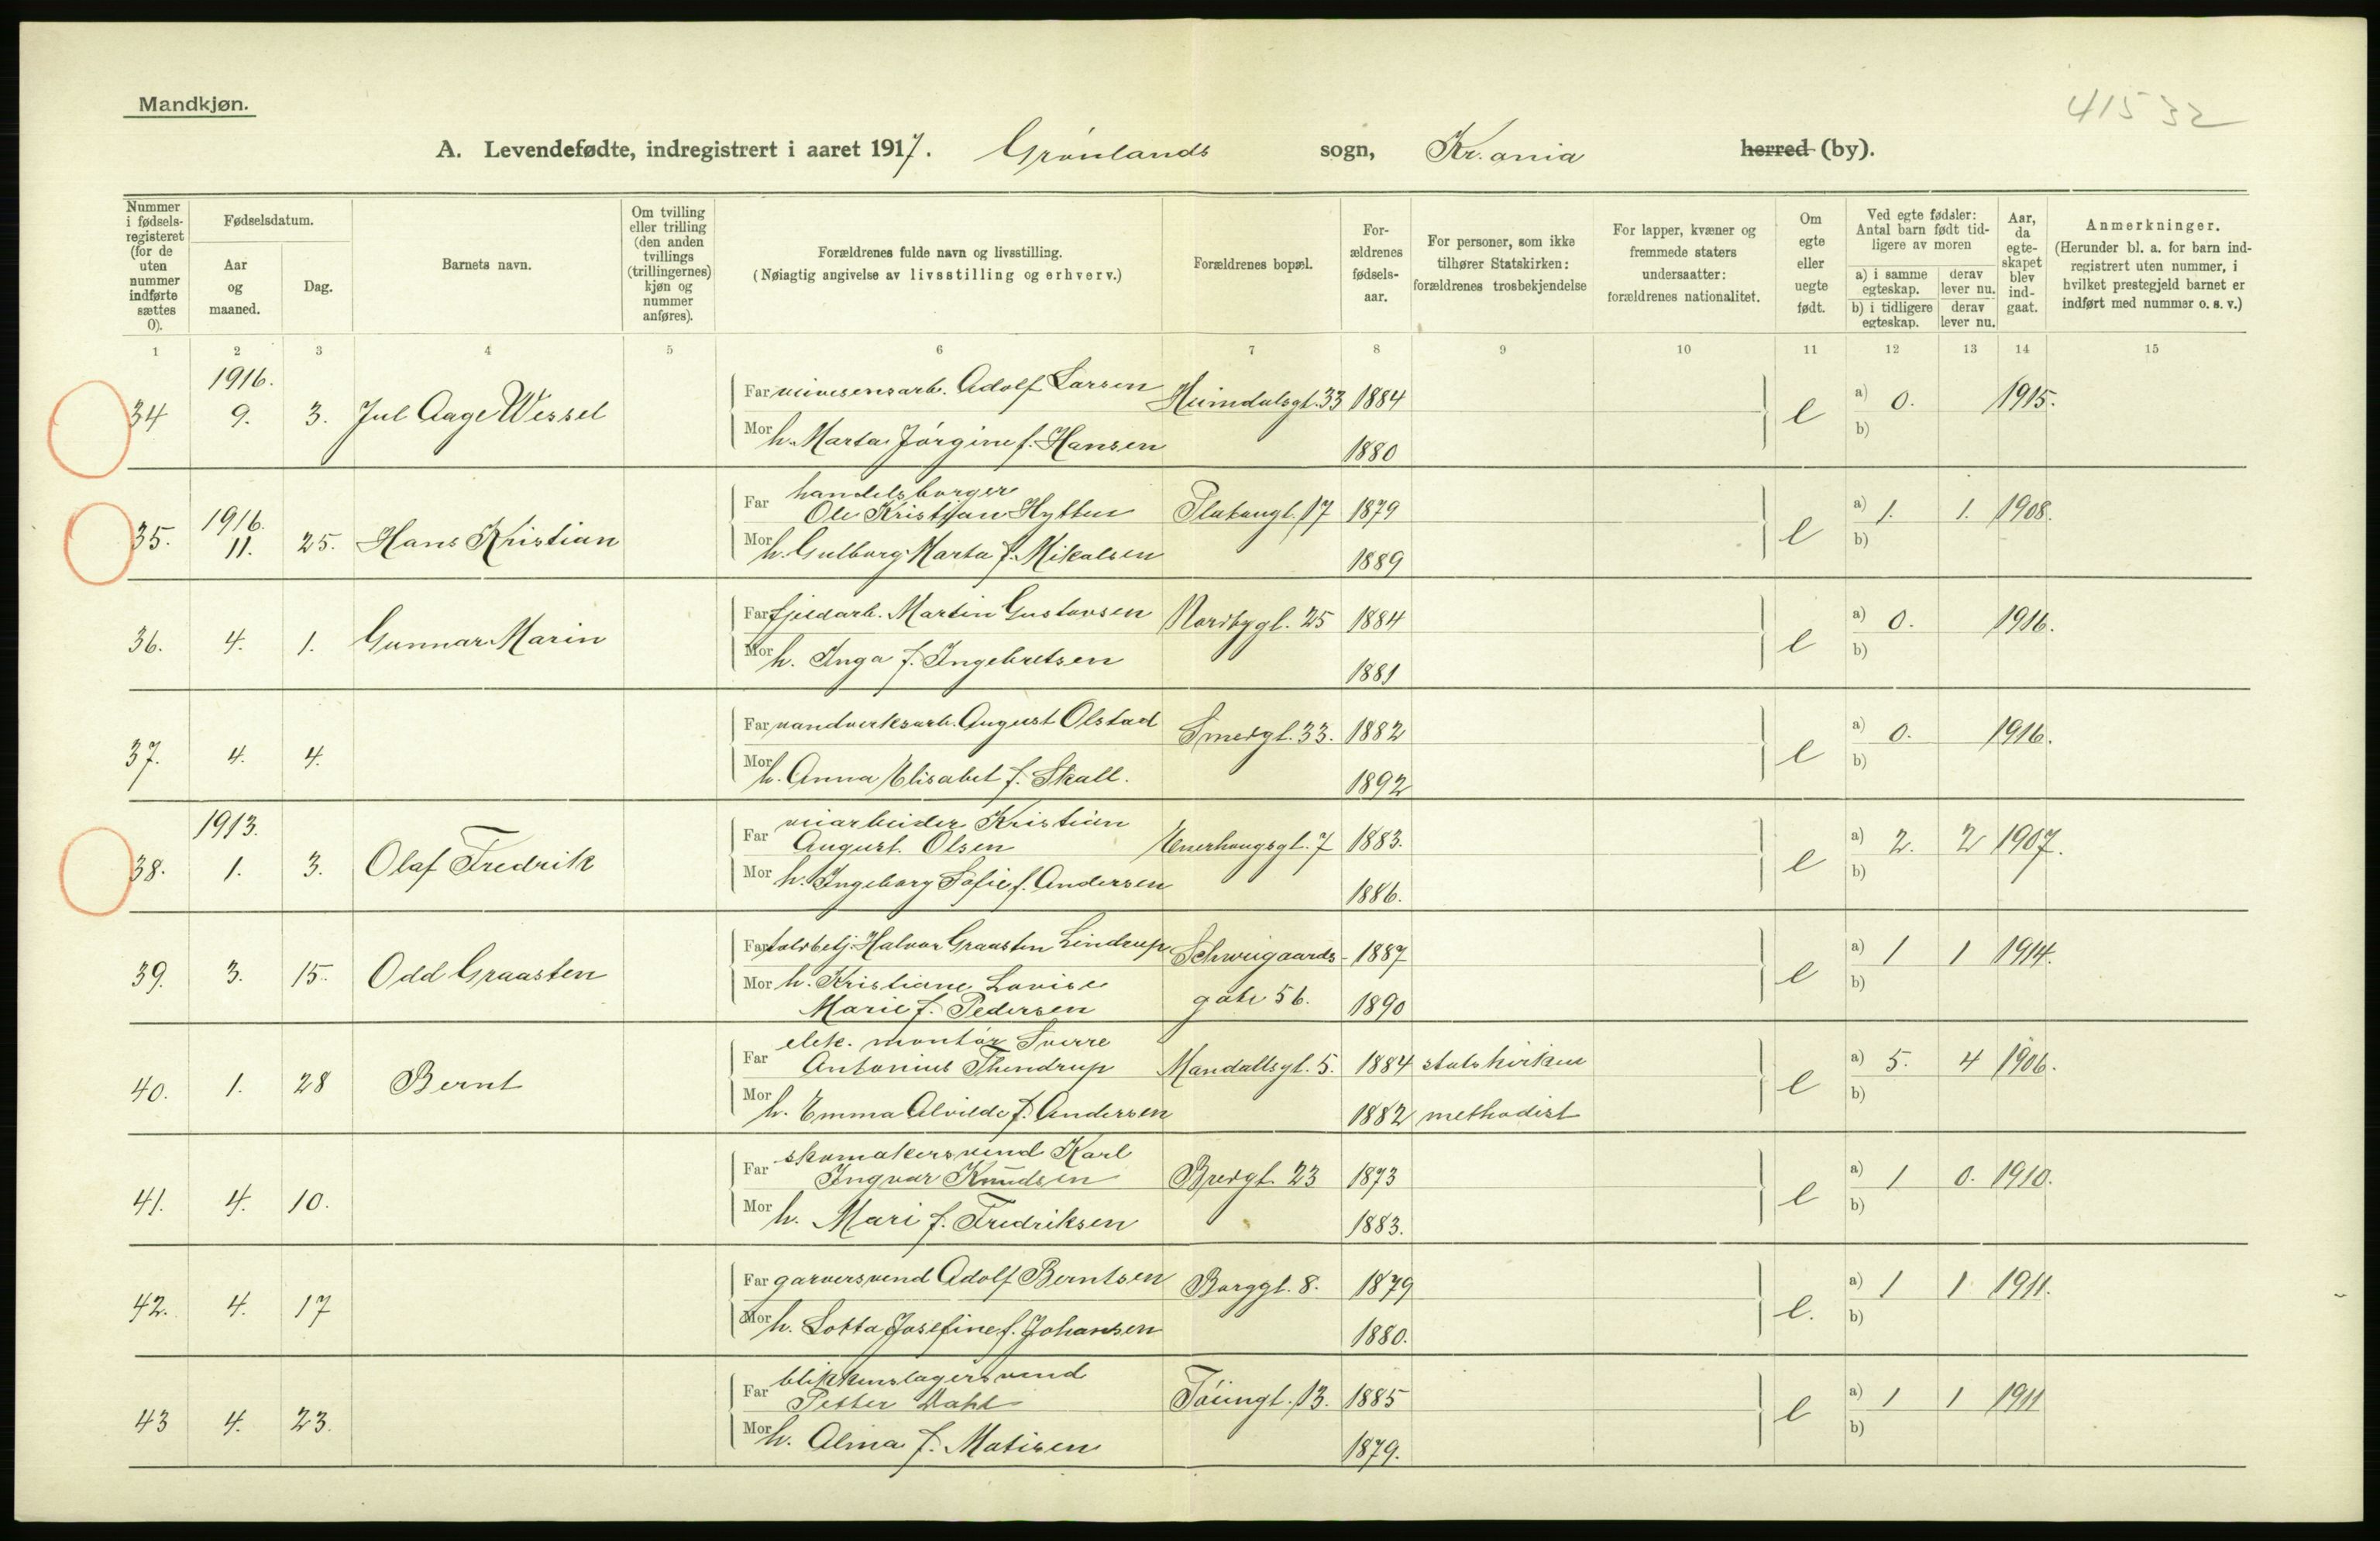 Mandkjøn.
41532
A. Levendefødte, indregistrert i aaret 1917. Grønlands sogn, Kr.ania herred (by).
Nummer i fødsels-registeret (for de uten nummer indførte sættes 0).
Fødselsdatum.
Aar og maaned.
Dag.
Barnets navn.
Om tvilling eller trilling (den anden tvillings (trillingernes) kjøn og nummer anføres).
Forældrenes fulde navn og livsstilling.
(Nøiagtig angivelse av livsstilling og erhverv.)
Forældrenes bopæl.
For-ældrenes fødsels-aar.
For personer, som ikke tilhører Statskirken: forældrenes trosbekjendelse
For lapper, kvæner og fremmede staters undersaatter: forældrenes nationalitet.
Om egte eller uegte født.
Ved egte fødsler: Antal barn født tid-ligere av moren
a) i samme egteskap. derav lever nu.
b) i tidligere egteskap. derav lever nu.
Aar, da egte-skapet blev ind-gaat.
Anmerkninger.
(Herunder bl. a. for barn ind-registrert uten nummer, i hvilket prestegjeld barnet er indført med nummer o. s. v.)
1 2 3 4 5 6 7 8 9 10 11 12 13 14 15
1916.
34 9. 3. Jul Aage Wessel Far Adolf Larsen Heimdalsgt. 33 1884 e a) 0. 1915.
Mor h. Marta Jørgine f. Hansen 1880 b)
1916.
35. 11. 25. Hans Kristian Far handelsborger
Ole Kristian Hytten Platougt. 17 1879 e a) 1. 1. 1908.
Mor h. Gulborg Marta f. Mikalsen 1889 b)
36. 4. 1. Gunnar Marin Far fjeldarb. Martin Gustavsen Nordbygt. 25 1884 e a) 0. 1916.
Mor h. Inga f. Ingebretsen 1881 b)
37. 4. 4. Far vandverksarb. August Olstad Smedgt. 33. 1882 e a) 0. 1916.
Mor h. Anna Elisabet f. Skall. 1892 b)
1913.
38. 1. 3. Olaf Fredrik Far veiarbeider Kristian
August Olsen Enerhaugsgt. 7 1883. e a) 2. 2 1907.
Mor h. Ingeborg Sofie f. Andersen 1886. b)
39. 3. 15. Odd Graasten Far toldbetj. Halvor Graasten Lindrup Schweigaards- 1887 e a) 1 1 1914.
Mor h. Kristiane Lovise
Marie f. Pedersen gate 56. 1890 b)
40. 1. 28 Bernt Far elek. montør Sverre
Antonius Thendrup Mandallsgt. 5. 1884 statskirken e a) 5. 4 1906.
Mor h. Emma Alvilde f. Andersen 1882 methodist b)
41. 4. 10. Far skomakersvend Karl
Ingvar Knudsen Bredgt. 23 1873 e a) 1 0. 1910.
Mor h. Mari f. Fredriksen 1883. b)
42. 4. 17 Far garversvend Adolf Berntsen Borggt. 8. 1879 e. a) 1 1 1911.
Mor h. Lotta Josefine f. Johansen 1880. b)
43 4. 23. Far blikkenslagersvend
Petter Dahl Tøiengt. 13. 1885 e a) 1 1 1911
Mor h. Alma f. Matisen 1879. b)